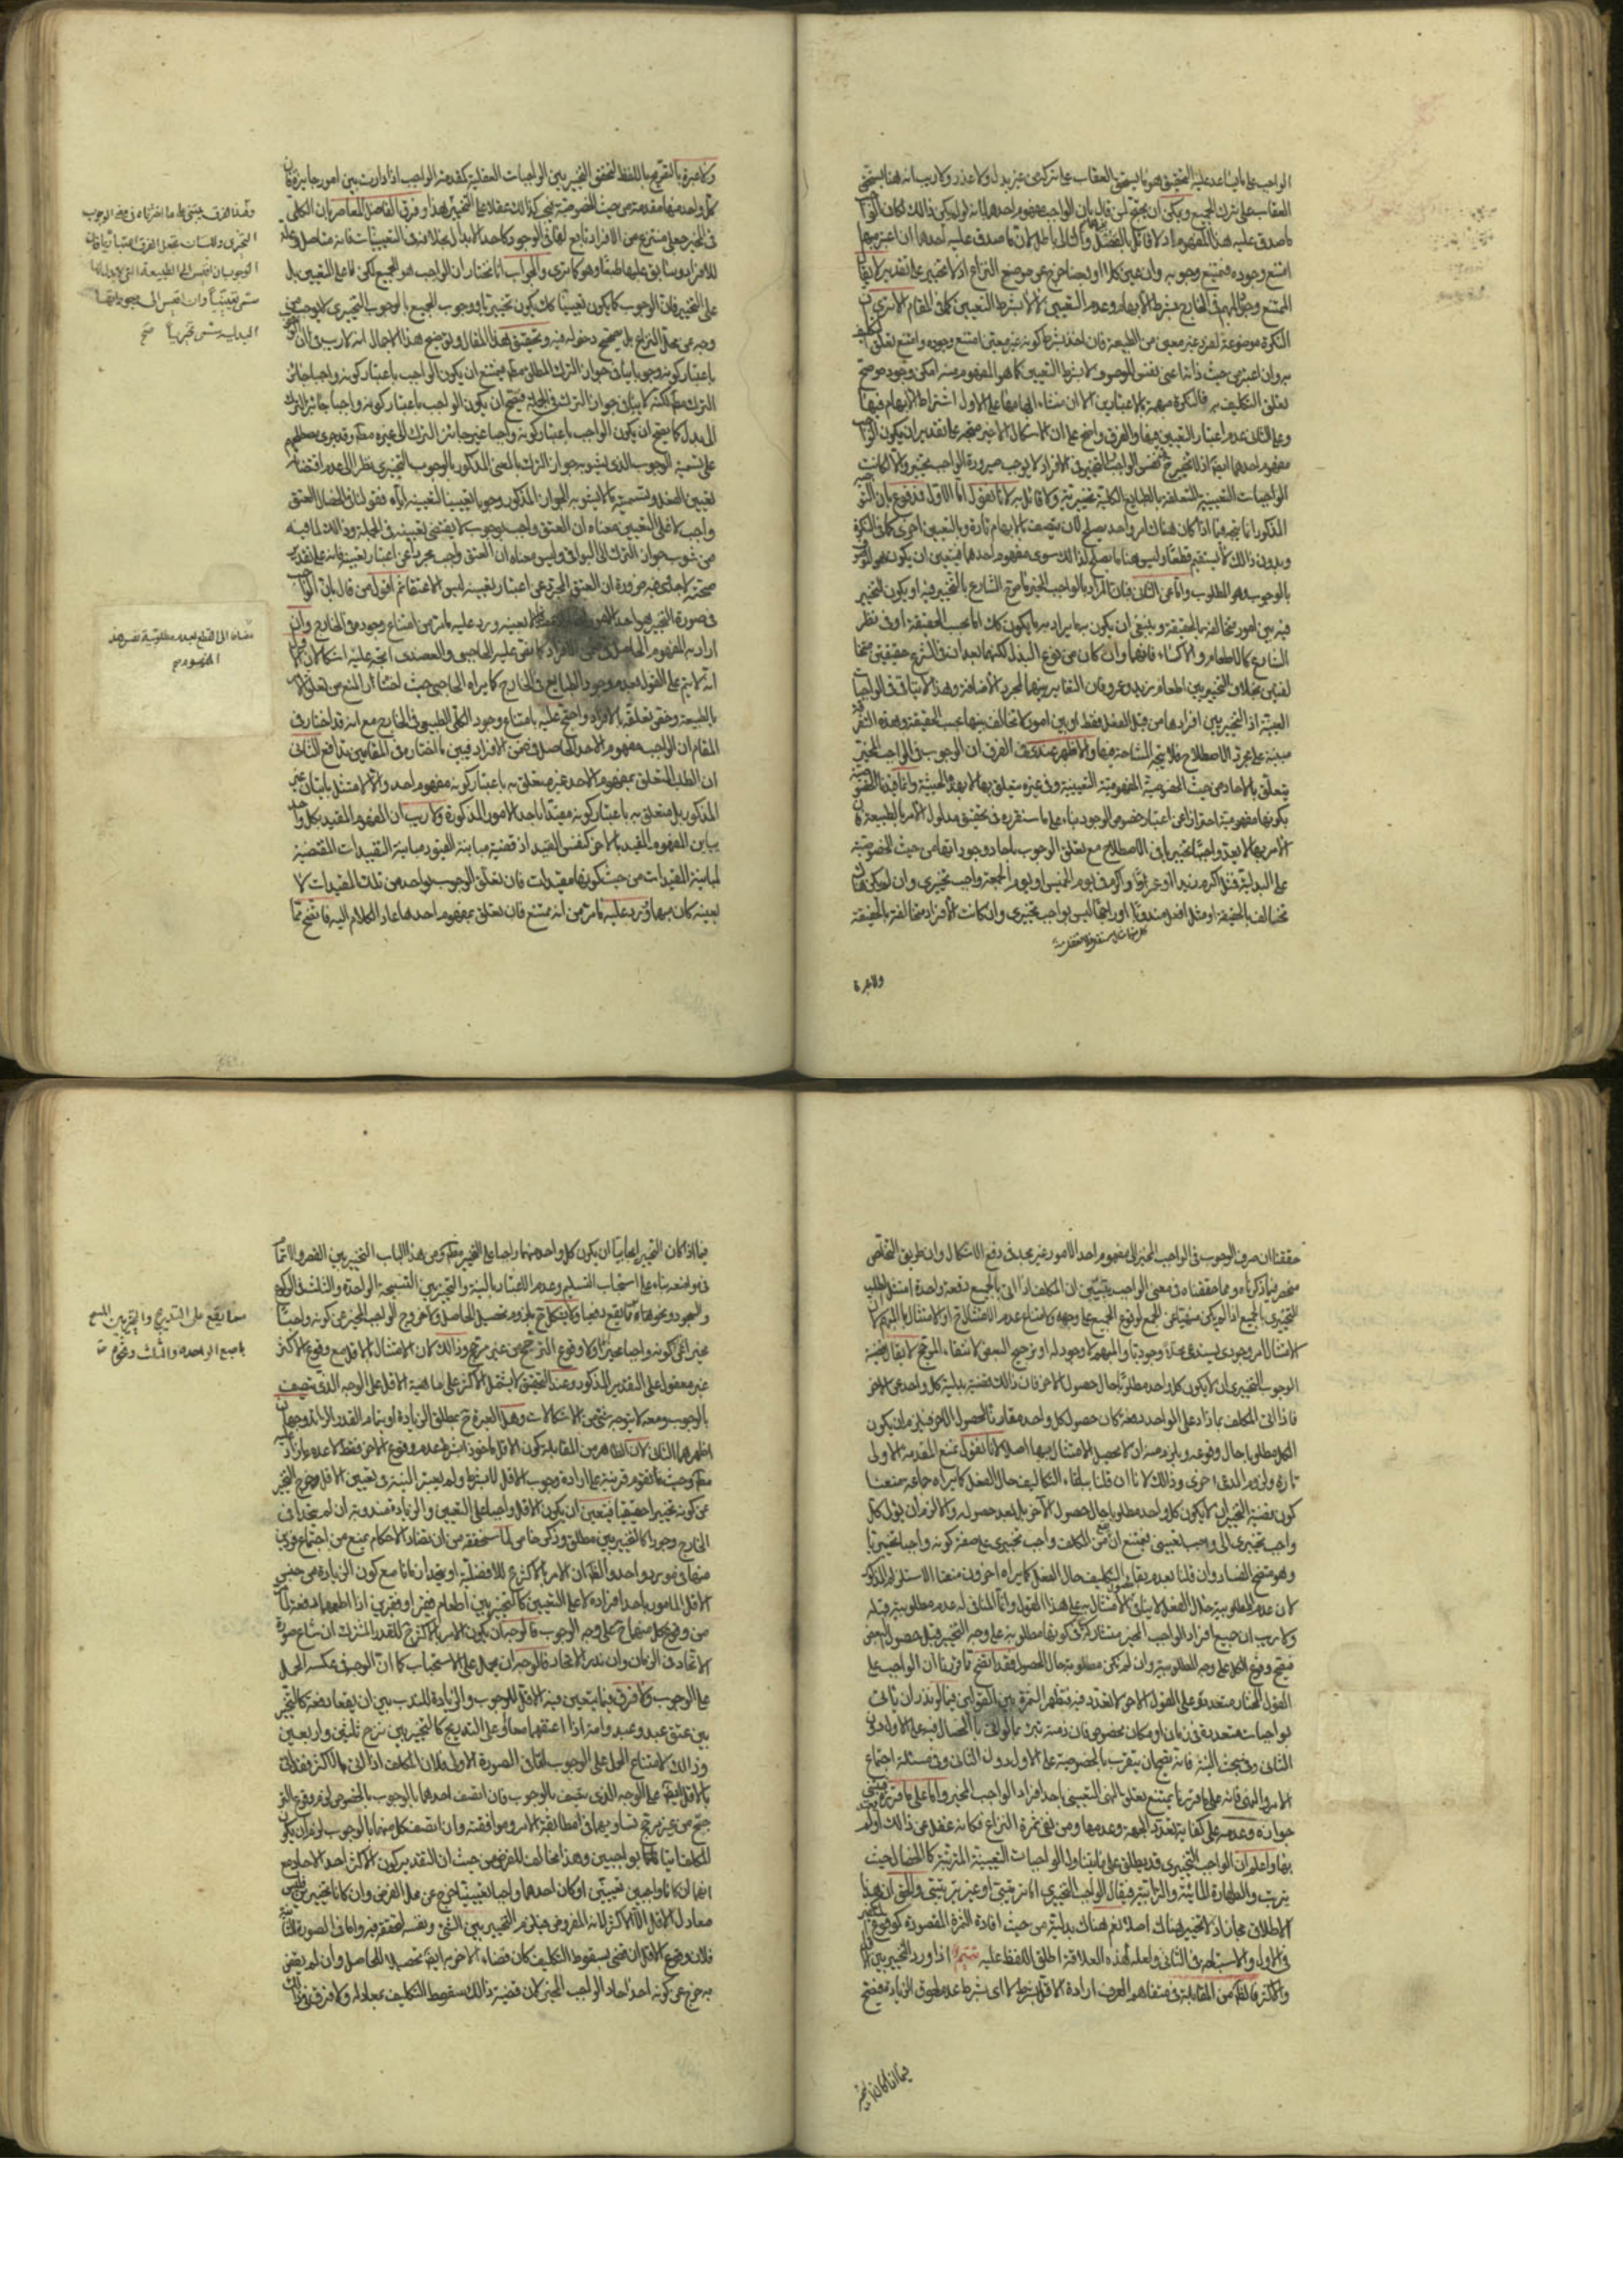 الواجب على ما يساعد عليه التحقيق هو ما يستحق العقاب على تركه من غير بدل ولا عذر ولا ريب انه هنا يستحق
العقاب على ترك الجميع ويمكن ان يحتج لمن قال بان الواجب مفهوم احدها بانه لو لم يكن ذلك لكان الواجب
ما صدق عليه هذا المفهوم اذ لا قائل بالفصل والتالى باطل لان ما صدق عليه احدها ان اعتبر مبهما
امتنع وجوده فيمتنع وجوبه وان عين كلا او بعضا خرج عن موضع النزاع اذ لا تخيير على تقديره لا يقال
الممتنع وجود المبهم فى الخارج بشرط الابهام وعدم التعيين لا لا بشرط التعيين كما فى المقام الا ترى ان
النكرة موضوعة لفرد غير معين من الطبيعة فان اخذ بشرط كونه غير معين امتنع وجوده وامتنع تعلق التكليف
به وان اعتبر من حيث ذاته اعنى نفس الموجود لا بشرط التعيين كما هو المفهوم منه امكن وجوده وصح
تعلق التكليف به فالنكرة مبهمة بالاعتبارين الا ان منشاء ابهامها على الاول اشتراط الابهام فيها
وعلى الثانى عدم اعتبار التعيين فيها والفرق واضح على ان الاشكال الاخير متجه على تقدير ان يكون الواجب
مفهوم احدها ايضا اذ لا تخيير ح فى نفس الواجب والتخيير فى الافراد لا يوجب صيرورة الواجب مخيرا والا لكانت
الواجبات التعيينية المتعلقة بالطبايع الكلية تخييرية ولا قائل به لانا نقول اما الاول فمدفوع بان التوجيه
المذكور انما يتجه فيما اذا كان هناك امر واحد يصلح لان يتصف بالابهام تارة وبالتعيين اخرى كما فى النكرة
وبدون ذلك لا يستقيم قطعا وليس هنا ما يصلح لذلك سوى مفهوم احدها فيتعين ان يكون هو المتصف
بالوجوب وهو المطلوب واما عن الثانى فبان المراد بالواجب المخير ما صرح الشارع بالتخيير فيه او يكون التخيير
فيه بين امور متخالفة بالحقيقة وينبغى ان يكون به ما يراد به ما يكون كك اما بحسب الحقيقة او فى نظر
الشارع كالاطعام والاكساء فانهما وان كان من نوع البذل لكنهما يعدان فى الشرع حقيقتين مختلفتين
بخلاف التخيير بين اطعام زيد وعمرو فان التغاير بينهما لمجرد الاضافة وهذا لا يتاتى فى الواجبات
العينية اذ التخيير بين افرادها من قبل العقل فقط او بين امور لا تخالف بينها بحسب الحقيقة وهذه التفرقة
مبنية على مجرد الاصطلاح فلا يتجه المشاحة فيها والاظهر عندى فى الفرق ان الوجوب فى الواجب المخير
يتعلق بالاحاد من حيث الخصوصية المفهومية التعيينية وفى غيره يتعلق بها لا بهذه الحيثية وانما قيدنا الخصوصية
بكونها مفهومية احترازا عن اعتبار خصوص الوجود بناء على ما سنقرره فى تحقيق مدلول الامر بالطبيعة فان
الامر بها لا يعد واجبا تخييريا فى الاصطلاح مع تعلق الوجوب باحاد وجوداتها من حيث الخصوصية
على البدلية فمثل اكرم زيدا او عمرا او اكرمه فى يوم الخميس او يوم الجمعة واجب تخييرى وان لم يكن هناك
تخالف بالحقيقة او مثل افعل مندوبا او راجحا ليس بواجب تخييرى وان كانت الافراد متخالفة بالحقيقة
ولا عبرة
ولا عبرة بالتصريح باللفظ لتحقق التخيير بين الواجبات العقلية كمقدمة الواجب اذا دارت بين امور جايزة فان
كل واحد منها مقدمة من حيث الخصوصية فيجب كذلك عقلا على التخيير هذا وفرق الفاضل المعاصر بان الكلى
فى المخير جعلى منتزع من الافراد تابع لها فى الوجود كاحد الابدال بخلافه فى التعيينيات فانه متاصل وعلة
للافراد وسابق عليها طبعا وهو كما ترى والجواب انا نختار ان الواجب هو الجميع لكن لا على التعيين بل
على التخيير فان الوجوب كما يكون تعيينيا كك يكون تخييريا ووجوب الجميع بالوجوب التخييرى لا يوجب
خروجه عن محل النزاع بل يصحح دخوله فيه وتحقيق هذا المقال وتوضيح هذا الاجال انه لا ريب فى ان
باعتبار كونه وجوبا ينافى جواز الترك المطلق مطلقا فيمتنع ان يكون الواجب باعتبار كونه واجبا جائز
الترك مطلقا لكنه لا ينافى جواز الترك فى الجملة فيصح ان يكون الواجب باعتبار كونه واجبا جائز الترك
الى بدل كما يصح ان يكون الواجب باعتبار كونه واجبا غير جائز الترك الى غيره مطلقا وقد جرى مصطلحهم
على تسمية الوجوب الذى يشوبه جواز الترك بالمعنى المذكور بالوجوب التخييرى نظرا الى عدم اقتضائه
تعيين الفعل وتسمية ما لا يشوبه الجواز المذكور وجوبا تعيينيا لتعيينه اياه فقولك فى الخصال العتق
واجب لا على التعيين معناه ان العتق واجب بوجوب لا يقتضى تعيينه فى الجملة وذلك لما فيه
من شوب جواز الترك الى البواقى وليس معناه ان العتق واجب مجردا عن اعتبار تعيينه فانه على تقدير
صحته لا جدوى فيه ضرورة ان العتق المجرد عن اعتبار تعيينه ليس الا عتقا ثم اقول من قال بان الواجب
فى صورة التخيير هو احد الامور لا بعينه ورد عليه ما مر من امتناع وجوده فى الخارج وان
اراد به المفهوم الحاصل فى ضمن الافراد كما نص عليه الحاجبى والعضدى اتجه عليه اشكالان الاول
انه لا يتم على القول بعدم وجود الطبايع فى الخارج كما يراه الحاجبى حيث اختار المنع من تعلق الامر
بالطبيعة وخص تعلقه بالافراد واحتج عليه بامتناع وجود الكلى الطبيعى فى الخارج مع انه قد اختار فى
المقام ان الواجب مفهوم الاحد الحاصل فى ضمن الافراد فبين ما اختاره فى المقامين تدافع الثانى
ان الطلب المتعلق بمفهوم الاحد غير متعلق به باعتبار كونه مفهوم احد والا لامتثل باتيان غير
المذكور بل متعلق به باعتبار كونه مقيدا باحد الامور المذكورة ولا ريب ان المفهوم المقيد بكل واحد
يباين المفهوم المقيد بالاخر كنفس القيد اذ قضية مباينة القيود مباينة التقييدات المقتضية
لمباينة المقيدات من حيث كونها مقيدات فان تعلق الوجوب بواحد من تلك المقيدات لا
بعينه كان مبهما ورد عليه ما مر من انه ممتنع فان تعلق بمفهوم احدها عاد الكلام اليه فاتضح مما
وهذا الفرق مبنى على ما اخترناه فى معنى الوجوب
التخيرى
صح
حققنا ان صرف الوجوب فى الواجب المخير الى مفهوم احد الامور غير مجد فى دفع الاشكال وان طريق التخلص
منحصر فيما ذكرناه ومما حققناه فى معنى الواجب يتبين ان المكلف اذا اتى بالجميع دفعة واحدة امتثل الطلب
التخييرى بالجميع اذا لم يكن منهيا عن الجمع لوقوع الجميع على وجهه ولامتناع عدم الامتثال ح او الامتثال بالمبهم لان
الامتثال امر وجودى يستدعى محلا وجوديا والمبهم لا وجود له او ترجيح البعض لانتفاء المرجح لا يقال قضية
الوجوب التخييرى ان لا يكون كل واحد مطلوبا حال حصول الاخر فان ذلك قضية بدلية كل واحد عن الاخر
فاذا اتى المكلف بما زاد على الواحد دفعة كان حصول كل واحد مقارنا لحصول الاخر فيلزم ان لا يكون
الكل مطلوبا حال وقوعه ويلزم منه ان لا يحصل الامتثال بها اصلا لانا نقول تمنع المقدمة الاولى
تارة ولزوم المدعى اخرى وذلك لانا ان قلنا ببقاء التكاليف حال الفعل كما يراه جماعة منعنا
كون قضية التخيير ان لا يكون كل واحد مطلوبا حال حصول الآخر بل بعد حصوله والا لزم ان يؤل كل
واجب تخييرى الى واجب تعيينى فيمتنع ان يقع من المكلف واجب تخييرى على صفة كونه واجبا تخييريا
وهو متضح الفساد وان قلنا بعدم بقاء التكليف حال الفعل كما يراه اخرون منعنا الاستلزام المذكور
لان عدم المطلوبية حال الفعل لا ينافى الامتثال به على هذا القول وانما المنافى له عدم مطلوبيته قبله
ولا ريب ان جميع افراد الواجب المخير متشاركة فى كونها مطلوبة على وجه التخيير قبل حصول البعض
فيصح وقوع الكل على وجه المطلوبية وان لم تكن مطلوبة حال الحصول فقد اتضح مما قررنا ان الواجب على
القول المختار متعدد وعلى القول الاخر لا تعدد فيه فتظهر الثمرة بين القولين فيما لو نذر ان ياتى
بواجبات متعددة فى زمان او مكان مخصوص فان ذمته تبرء بما لو اتى بالخصال فيه على الاول دون
الثانى وفى مبحث النية فانه يصح ان يتقرب بالخصوصية على الاول دون الثانى وفى مسئلة اجتماع
الامر والنهى فانه على ما قررنا يمتنع تعلق النهى التعيينى باحد افراد الواجب المخير واما على ما قرروه فيبتنى
جوازه وعدمه على كفاية تعدد الجهة وعدمها ومن نفى ثمرة النزاع فكانه غفل عن ذلك او لم يعتد
بها واعلم ان الواجب التخييرى قد يطلق على ما يتناول الواجبات التعيينية المترتبة كالخصال حيث
يترتب والطهارة المائية والترابية فيقال الواجب التخييرى اما ترتيبى او غير ترتيبى والحق ان هذا
الاطلاق مجاز اذ لا تخيير هناك اصلا نعم هناك بدلية من حيث افادة الثمرة المقصودة كوقوع التكفير
فى الاول والاستباحة فى الثانى ولعله لهذه العلاقة اطلق اللفظ عليه تتميم اذا ورد التخيير بين الاقل
والاكثر فالظاهر من المقابلة فى متفاهم العرف ارادة الاقل بشرط لا اى بشرط عدم لحوق الزيادة فيصح
فيما اذا كان التخيير
فيما اذا كان التخيير ايجابيا ان يكون كل واحد منهما واجبا على التخيير مطلقا ومن هذا الباب التخيير بين القصر والاتمام
فى مواضعه بناء على استحباب التسليم وعدم الاعتبار بالنية والتخيير بين التسبيحة الواحدة والثلث فى الركوع
والسجود ونحوهما مما يقع دفعا ولا يشكل ح بلزوم تحصيل الحاصل ولا خروج الواجب المخير عن كونه واجبا
مخيرا عن كونه واجبا مخيرا ولا وقوع الترجيح من غير مرجح وذلك لان الامتثال بالاقل مع وقوع الاكثر
غير معقول على التقدير المذكور وعند التحقيق لا يشتمل الاكثر على ماهية الاقل على الوجه الذى يتصف
بالوجوب ومعه لا يتوجه شىء من الاشكالات وهل العبرة ح بمطلق الزيادة او بتمام القدر الزائد وجهان
اظهرهما الثانى لان الظاهر من المقابلة كون الاقل ماخوذا بشرط عدم وقوع الاخر فقط لا عدم ما زاد عليه
مطلقا وحيث ما تقوم قرينة على ارادة وجوب الاقل لا بشرط ولم يعتبر النية فى تعيين الاقل خرج التخيير
عن كونه تخييرا حقيقيا فيتعين ان يكون الاقل واجبا على التعيين والزيادة مندوبة ان لم يتحدا فى
الخارج وجودا كالتخيير بين مطلق وذكر خاص لما سنحققه من ان تضاد الاحكام يمنع من اجتماع فردين
منها فى مورد واحد والظاهر ان الامر بالاكثر ح للافضلية او يتحدان زمانا مع كون الزيادة من جنس
الاقل المامور باحد افراده لا على التعيين كالتخيير بين اطعام فقير او فقيرين اذا اطعمهما دفعة لما مر
من وقوع كل منهما ح على وجه الوجوب فالوجه ان يكون الامر بالاكثر ح للقدر المشترك ان شاع صورة
الاتحاد فى الزمان وان ندر الاتحاد فالوجه ان يحمل على الاستحباب كما ان الوجه فى عكسه الحمل
على الوجوب ولا فرق فيما يتعين فيه الاقل للوجوب والزيادة للندب بين ان يقعا دفعة كالتخيير
بين عتق عبد وعبد وامة اذا اعتقهما معا او على التدريج كالتخيير بين نزح ثلثين واربعين
وذلك لامتناع الحمل على الوجوب اما فى الصورة الاولى فلان المكلف اذا اتى بالاكثر فقد اتى
بالاقل ايضا على الوجه الذى يتصف بالوجوب فان اتصف احدهما بالوجوب بالخصوص لزم وقوع الترجيح
من غير مرجح لتساويهما فى مطابقة الامر وموافقته وان اتصف كل منهما بالوجوب لزم ان يكون
المكلف اتيا بواجبين وهذا مخالف للفرض من حيث ان التقدير كون الاكثر احد الاحاد مع
انهما ان كانا واجبين تعيينيين او كان احدهما واجبا تعيينيا خرج عن محل الفرض وان كانا تخييريين فليس
معادل الاقل الا الاكثر لانه المفروض فيلزم التخيير بين الشىء ونفسه لتحققه فيه واما فى الصورة الثانية
فلان وقوع الاقل ان قضى بسقوط التكليف كان قضاء الاخر به ايضا تحصيلا للحاصل وان لم يقض
به خرج عن كونه احد احاد الواجب المخير لان قضية ذلك سقوط التكليف بمعادله ولا فرق فى ذلك
مما يقع على التدريج والتخيير بين المسح
باصبع الواحدة والثلث ونحوه